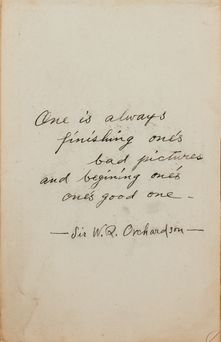 One is always
finishing one's
bad pictures
and begining one's
one's good one —
— Sir W. Q. Orchardson —